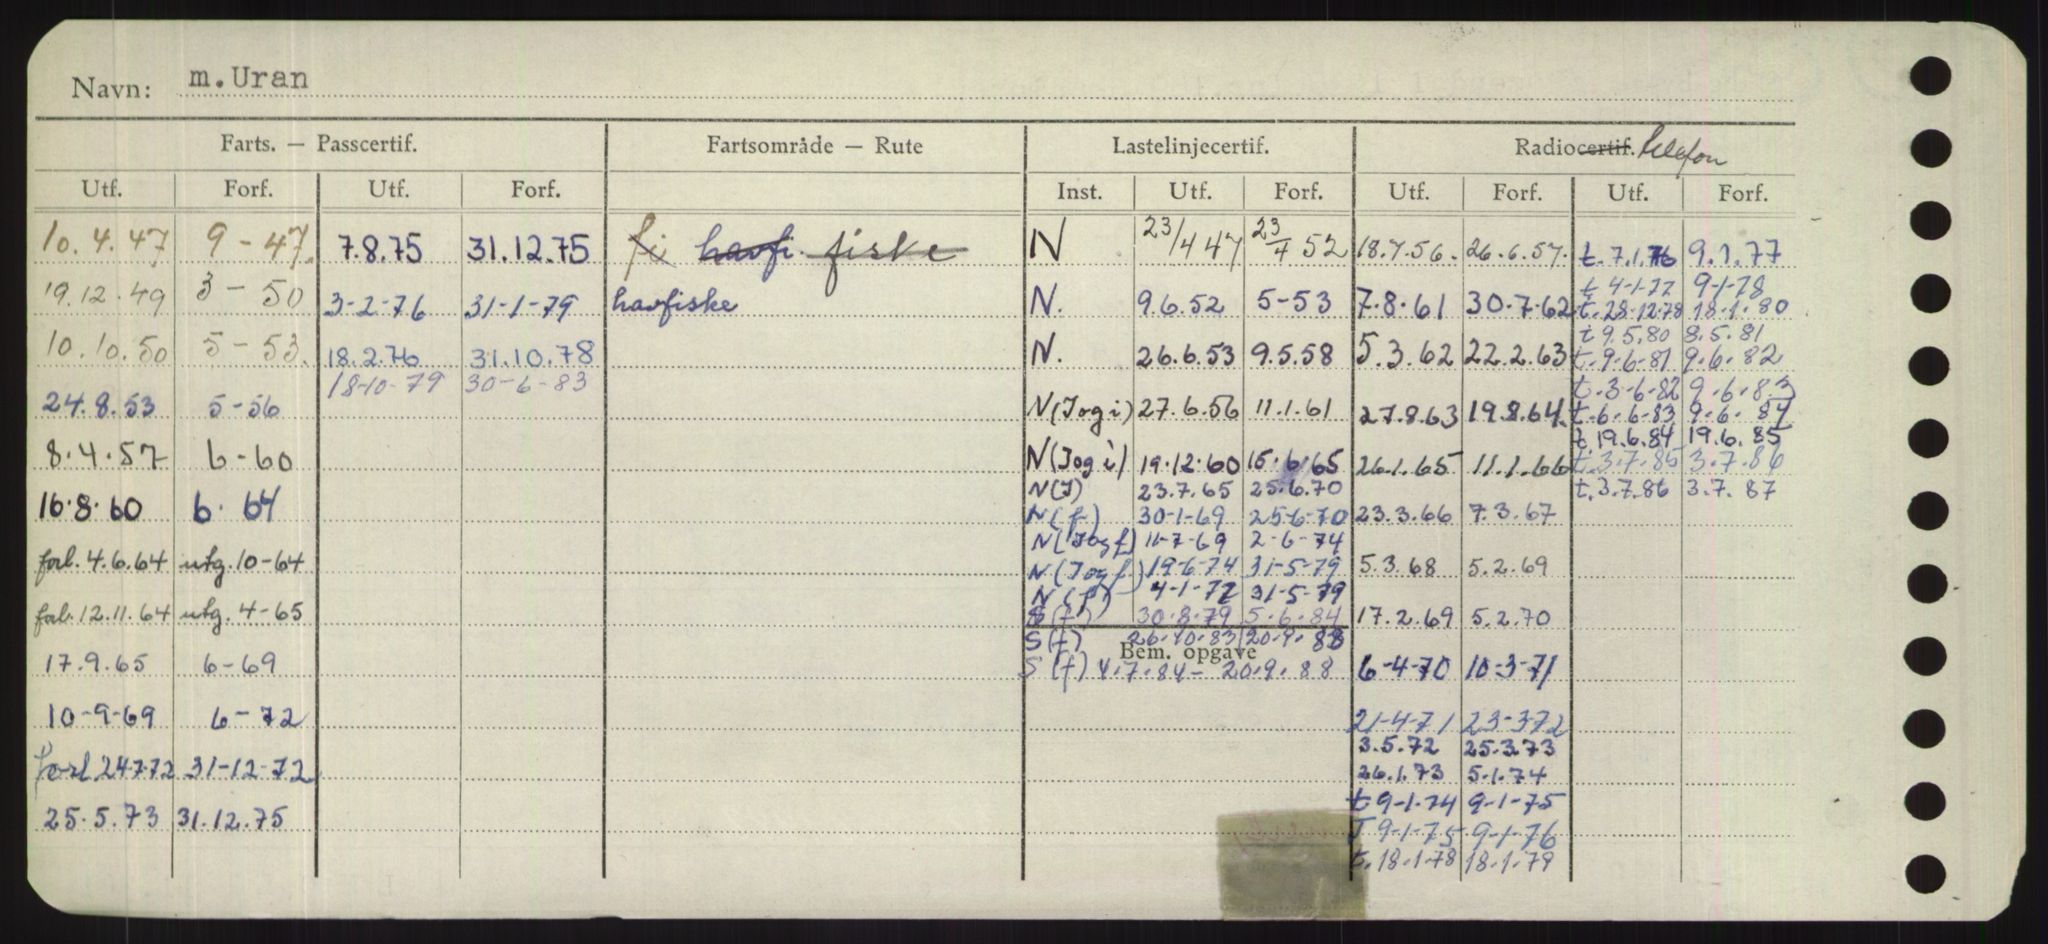 Navn: m.Uran
Farts. — Passcertif. Fartsområde — Rute Lastelinjecertif. Radiocertif. telefon
Utf. Forf. Utf. Forf. Inst. Utf. Forf. Utf. Forf. Utf. Forf.
10.4.47 9-47. 7.8.75 31.12.75 fi havfi. fiske N 23/4 47 23/4 52 18.7.56. 26.6.57. t. 7.1.76 9.1.77
t 4-1-77 9-1-78
19.12.49 3-50 3-2-76 31-1-79 havfiske N. 9.6.52 5-53 7.8.61 30.7.62 t. 28.12.78 18.1.80
t 9.5.80 8.5.81
10.10.50 5-53. 18.2.76 31.10.78 N. 26.6.53 9.5.58 5.3.62 22.2.63 t. 9-6-81 9.6.82
18-10-79 30-6-83 t. 3-6-82 9.6.83
24.8.53 5-56 N(Jogi) 27.6.56 11.1.61 27.8.63 19.8.64. t. 6.6-83 9.6.84
t 19.6.84 19.6.85
8.4.57 6-60 N(Jog i) 19.12.60 15.6.65 26.1.65 11.1.66 t. 3.7.85 3.7.86
N(J) 23.7.65 25.6.70 t. 3.7.86 3.7.87
16.8.60 6.64 N(f) 30-1-69 25-6-70 23.3.66 7.3.67
N(Jogf) 11-7-69 2-6-74
forl. 4.6.64 utg. 10-64 N(Jogf.) 19-6-74 31-5-79 5.3.68 5.2.69
N(f) 4-1-72 31-5-79
forl. 12.11.64 utg. 4-65 S(f) 30.8.79 5.6.84 17.2.69 5.2.70
S(f) 26.10.83 20.9.88
Bem. opgave
17.9.65 6-69 S(f) 4.7.84- 20.9.88 6-4-70 10-3-71
10-9-69 6-72 21-4-71 23-3-72
3.5.72 25.3.73
forl 24.7.72 31-12-72 26.1.73 5.1.74
t 9-1-74 9-1-75
25.5.73 31.12.75 T 9-1-75 9-1-76
t. 18-1-78 18-1-79